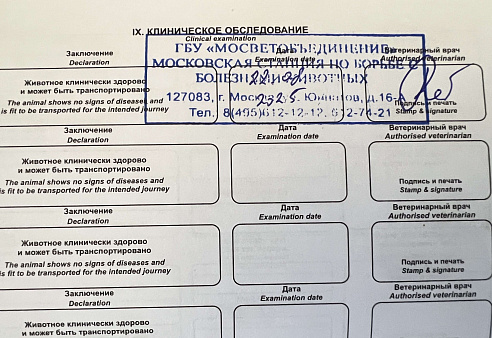 IX. КЛИНИЧЕСКОЕ ОБСЛЕДОВАНИЕ
Clinical examination
Заключение Дата Ветеринарный врач
Declaration Examination date Authorised veterinarian
ГБУ «МОСВЕТОБЪЕДИНЕНИЕ»
МОСКОВСКАЯ СТАНЦИЯ ПО БОРЬБЕ С
БОЛЕЗНЯМИ ЖИВОТНЫХ
127083, г. Москва, ул. Юннатов, д.16-
Тел. 8(495)612-12-12, 612-74-21
Животное клинически здорово
и может быть транспортировано
The animal shows no signs of diseases and
is fit to be transported for the intended journey
Подпись и печать
Stamp & signature
Заключение Дата Ветеринарный врач
Declaration Examination date Authorised veterinarian
Животное клинически здорово
и может быть транспортировано
The animal shows no signs of diseases and
is fit to be transported for the intended journey
Подпись и печать
Stamp & signature
Заключение Дата Ветеринарный врач
Declaration Examination date Authorised veterinarian
Животное клинически здорово
и может быть транспортировано
The animal shows no signs of diseases and
is fit to be transported for the intended journey
Подпись и печать
Stamp & signature
Заключение Дата Ветеринарный врач
Declaration Examination date Authorised veterinarian
Животное клинически здорово
и может быть транспортировано